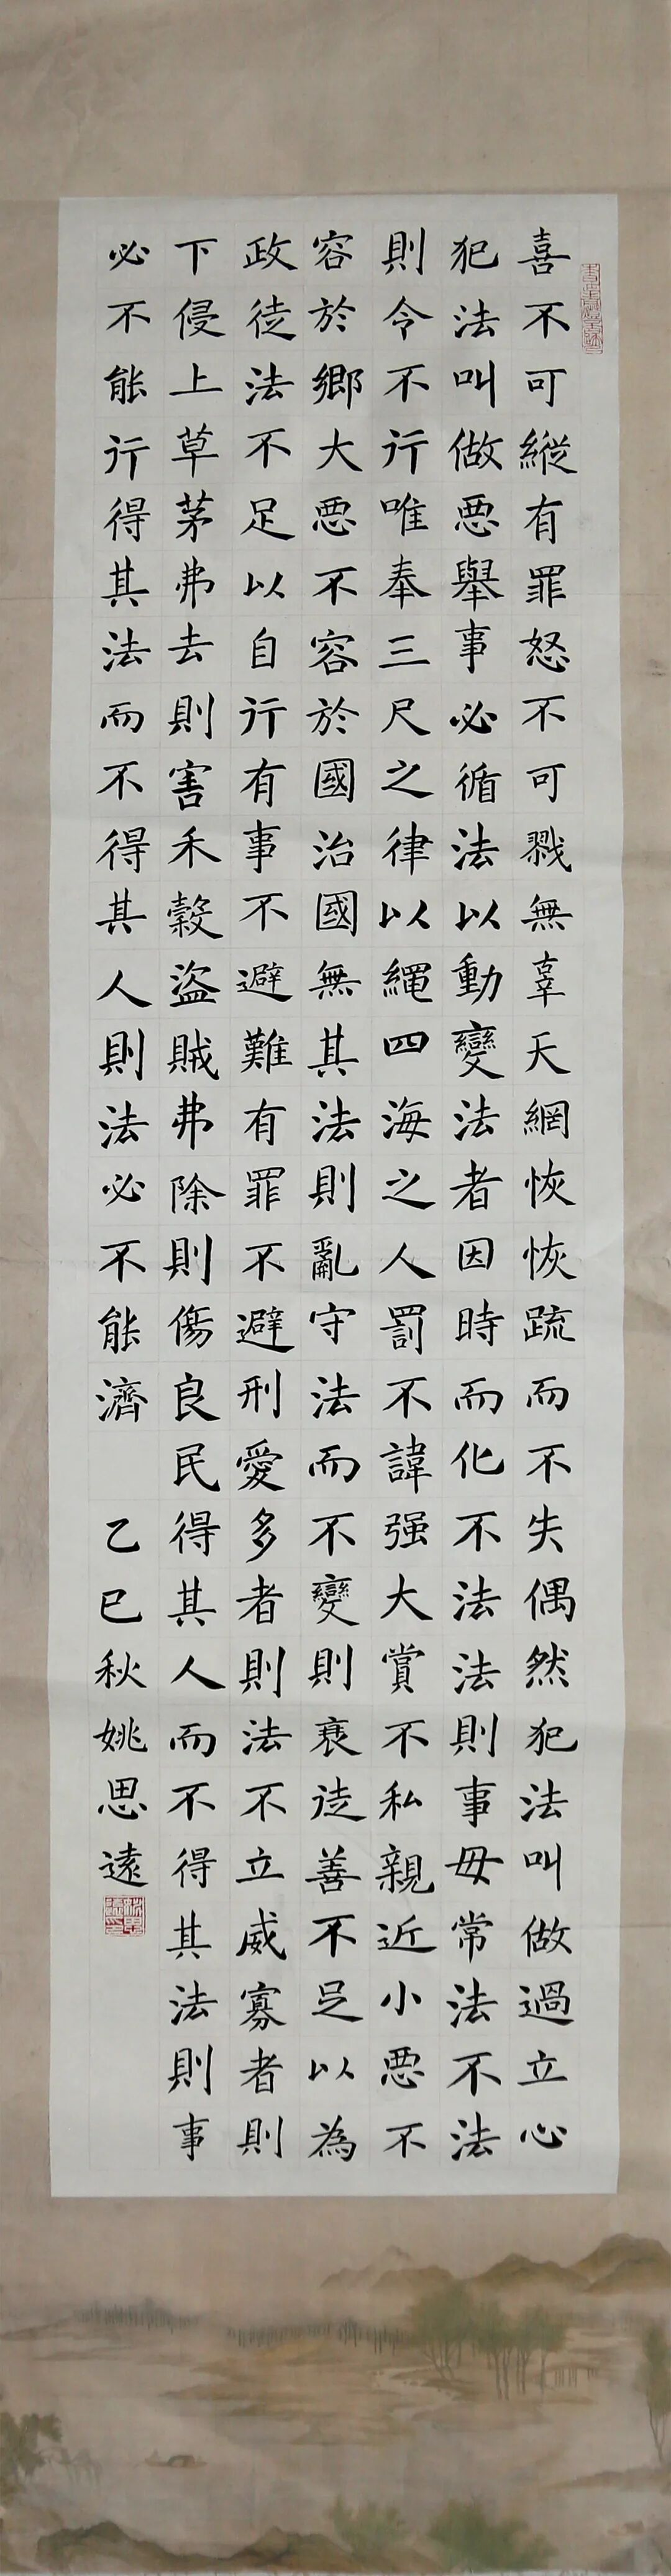 喜不可縱有罪怒不可戮無辜天網恢恢疏而不失偶然犯法叫做過立心
犯法叫做悪舉事必循法以動變法者因時而化不法法則事毋常法不法
則令不行唯奉三尺之律以繩四海之人罰不諱强大賞不私親近小悪不
容於鄉大悪不容於國治國無其法則亂守法而不變則衰徒善不足以為
政徒法不足以自行有事不避難有罪不避刑愛多者則法不立威寡者則
下侵上草茅弗去則害禾穀盜賊弗除則傷良民得其人而不得其法則事
必不能行得其法而不得其人則法必不能濟
乙巳秋姚思遠